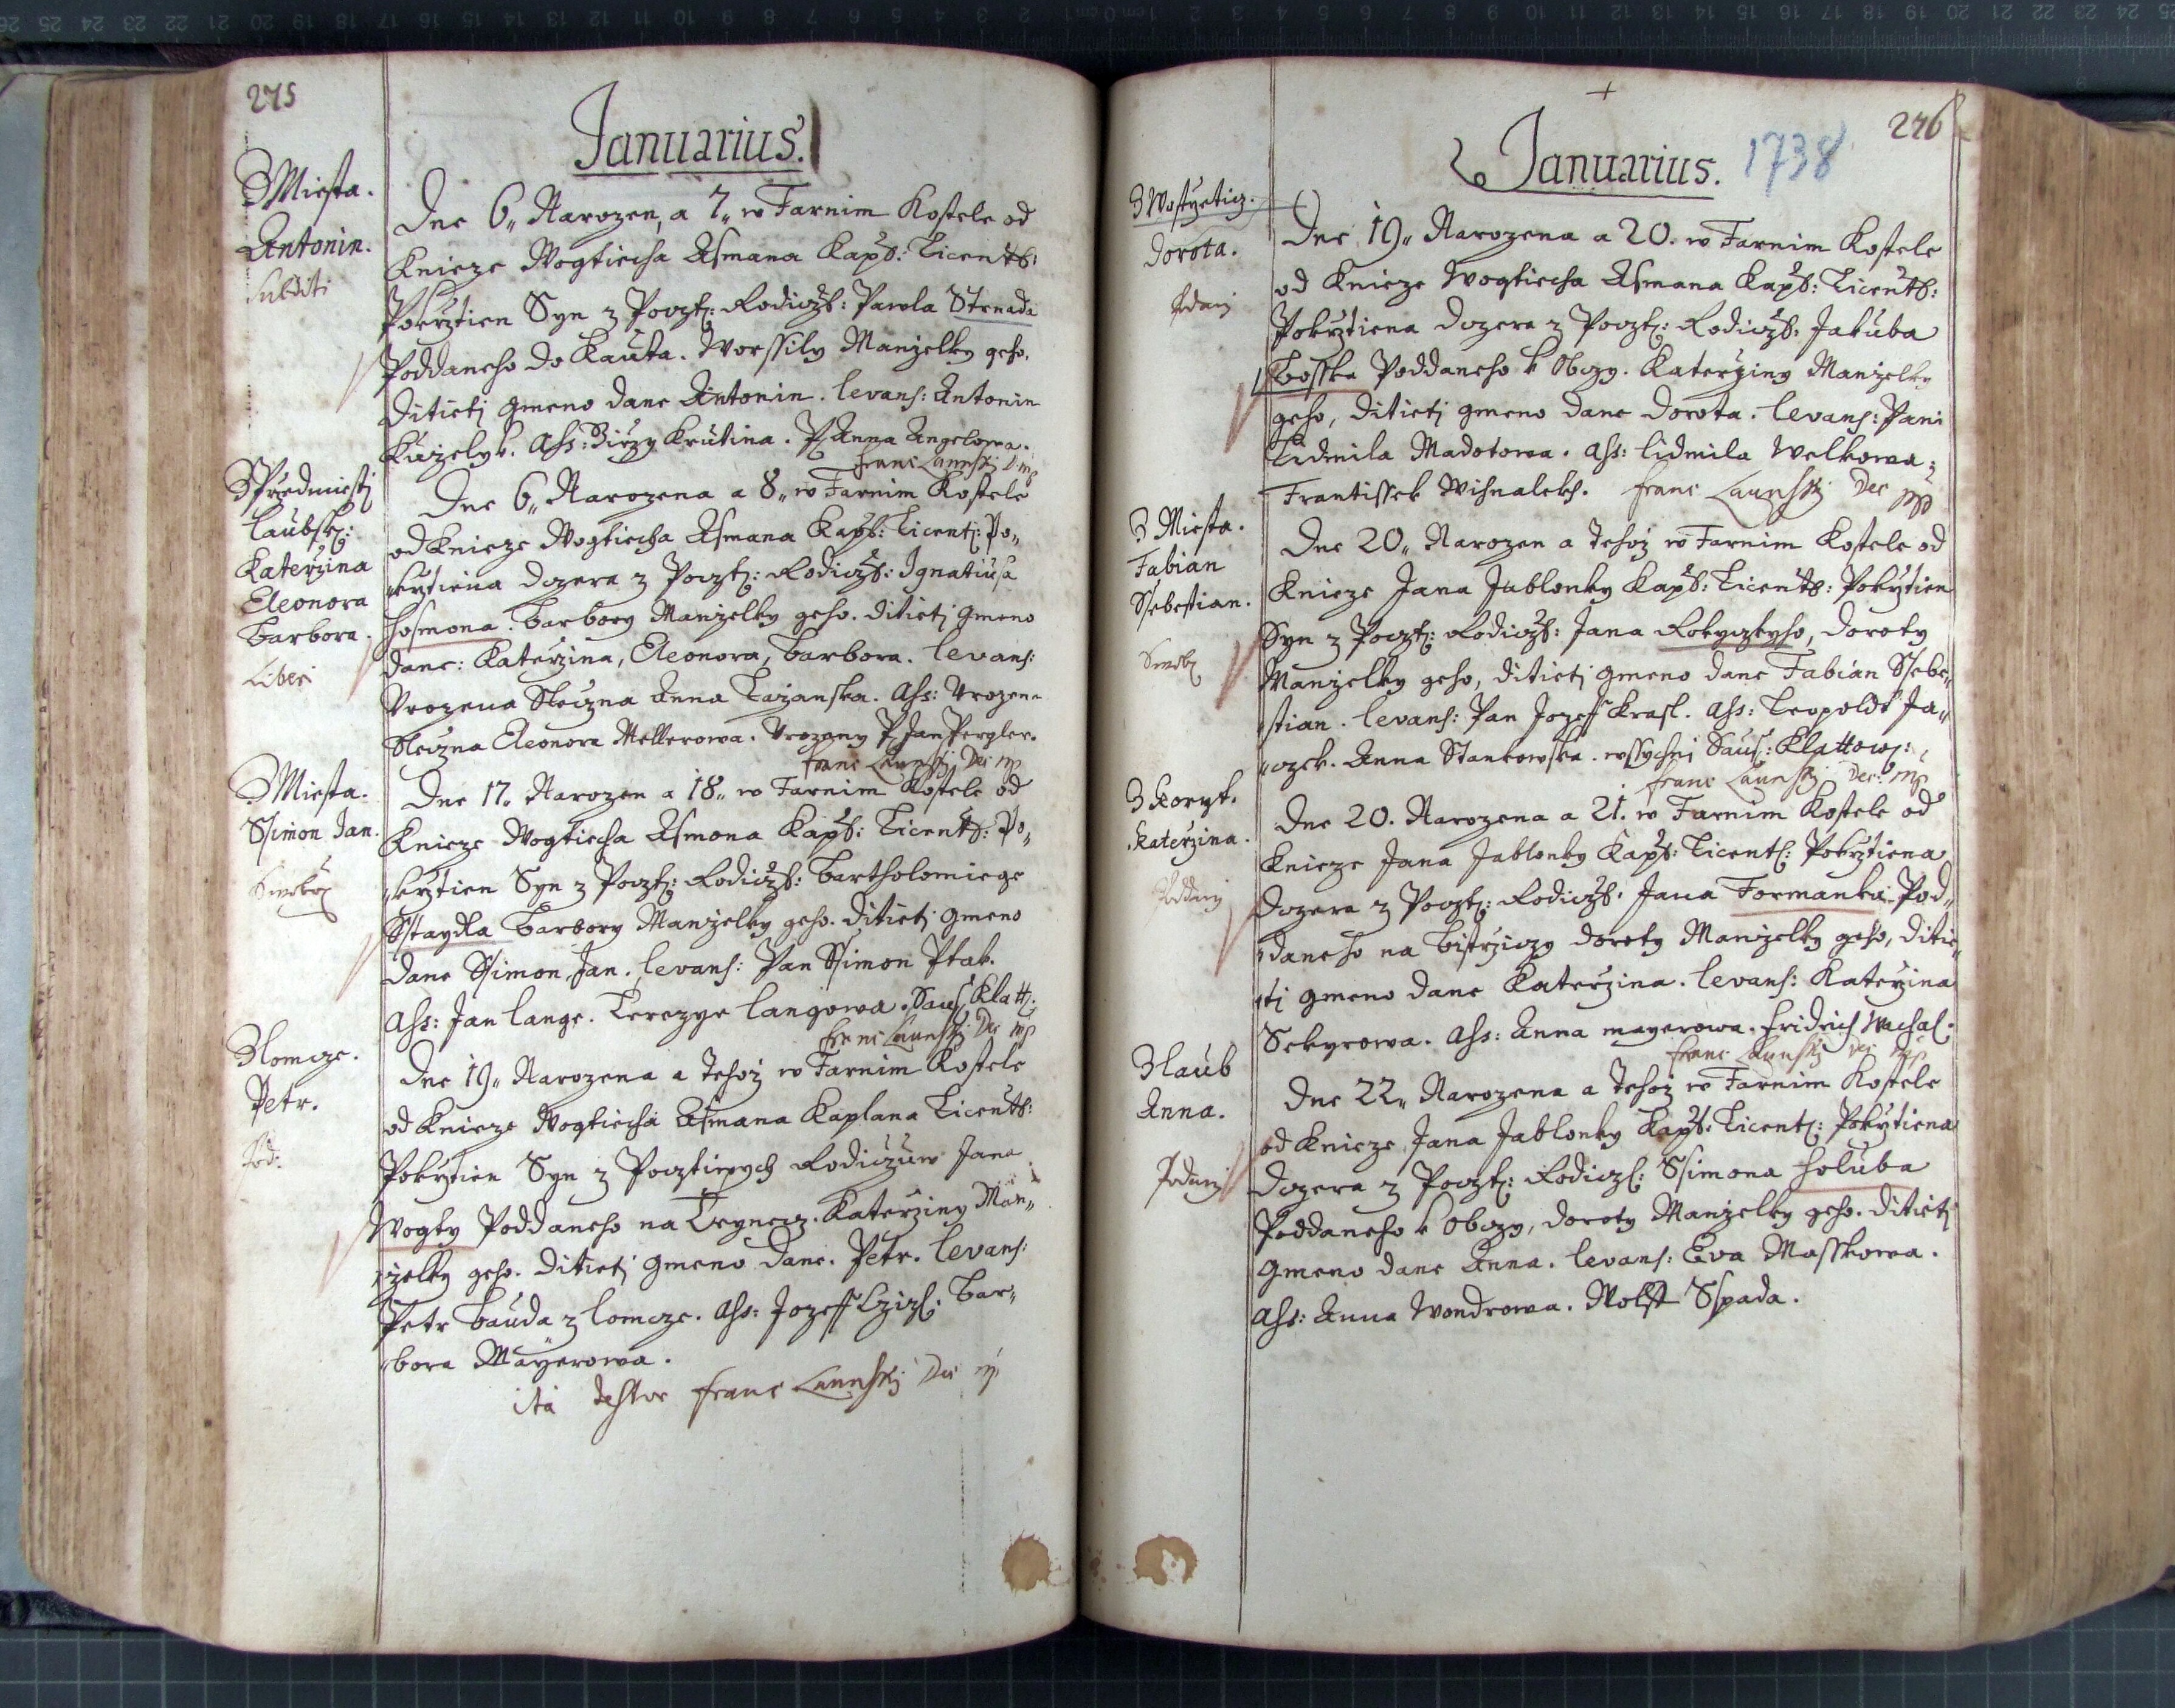 275
Januarius.
Z Miesta.
Antonin.
Subditi
Dne 6,, Narozen, a 7,, w Farnim Kostele od
Knieze Wogtiecha Asmana Kapl: Licents:
Pokrztien Syn z Poczt: Rodiczů: Pawla Strnada
Poddaneho do Kauta. Worssily Manzelky geho.
Ditieti gmeno dane Antonin. levans: Antonin
Kuzelyk. Ass: Girzy Krutina. P. Anna Angelowa.
Franc Launsky D. mp
Z Przedmiesti
Laubsk:
Katerzina
Eleonora
Barbora.
Liberi
Dne 6,, Narozena a 8,, w Farnim Kostele
od Knieze Wogtiecha Asmana Kapl: Licent: Po,,
,,krztiena Dczera z Poczt: Rodiczů: Ignatiusa
Hosmana. Barbory Manzelky geho. Ditieti gmeno
dane: Katerzina, Eleonora, Barbora. levans:
Urozena Sleczna Anna Lazanska. Ass: Urozena
Sleczna Eleonora Mellerowa. Urozeny P. Jan Pergler.
Franc Launsky Dec mp
Z Miesta.
Ssimon Jan.
Dne 17. Narozen a 18,, w Farnim Kostele od
Knieze Wogtiecha Asmona Kapl: Licents: Po,,
,,krztien Syn z Poczt: Rodiczů: Bartholomiege
Sstayla Barbory Manzelky geho. Ditieti gmeno
dane Ssimon Jan. levans: Pan Ssimon Ptak.
Ass: Jan Lange. Terezye Langowa. Saus Klatt:
Franc Launsky Dec mp
Z Lomcze.
Petr.
Pod:
Dne 19,, Narozena a Tehoz w Farnim Kostele
od Knieze Wogtiecha Asmana Kaplana Licents:
Pokrztien Syn z Pocztiwych Rodiczuw Jana
Wogty Poddaneho na Teynecz. Katerziny Man,,
,,zelky geho. Ditieti gmeno dane. Petr. levans:
Petr Bauda z Lomcze. Ass: Jozeff Czizl. Bar,,
,,bora Mayerowa.
ita testor Franc Launsky Dec mp
276
Januarius. 1738
Dorota.
Podani
Dne 19,, Narozena a 20. w Farnim Kostele
od Knieze Wogtiecha Asmana Kapl: Licents:
Pokrztiena Dczera z Poczt: Rodiczů: Jakuba
Bosska Poddaneho k Obczy. Katerziny Manzelky
geho, Ditieti gmeno dane Dorota. levans: Pani
Lidmila Madotowa. Ass: Lidmila Welkowa;
Frantissek Wisnalek. Franc Launsky Dec mp
Z Miesta.
Fabian
Ssebestian.
Dne 20,, Narozen a Tehoz w Farnim Kostele od
Knieze Jana Jablonky Kapl: Licents: Pokrztien
Syn z Poczt: Rodiczů: Jana Rokyczkyho, Doroty
Manzelky geho, Ditieti gmeno dane Fabian Ssebe,,
,,stian. levans: Pan Jozeff Krasl. Ass: Leopoldt Ja,,
,,czek. Anna Stankowska. wssychni Saus: Klattow:
Franc Launsky Dec: mp
Katerzina.
Poddany
Dne 20. Narozena a 21. w Farnim Kostele od
Knieze Jana Jablonky Kapl: Licents: Pokrztiena
Dczera z Poczt: Rodiczů: Jana Formanka Pod,,
,,daneho na Bistrziczy Doroty Manzelky geho, Ditie,,
,,ti gmeno dane Katerzina. levans: Katerzina
Sekyrowa. Ass: Anna Mayerowa. Fridrich Wachal.
Franc Launsky Dec mp
Z Laub
Anna.
Podany
Dne 22,, Narozena a Tehoz w Farnim Kostele
od Knieze Jana Jablonky Kapl: Licent: Pokrztiena
Dczera z Poczt: Rodiczů: Ssimona Holuba
Poddaneho k Obczy, Doroty Manzelky geho. Ditieti
gmeno dane Anna. levans: Eva Masskowa.
Ass: Anna Wondrowa. Wolff Sspada.